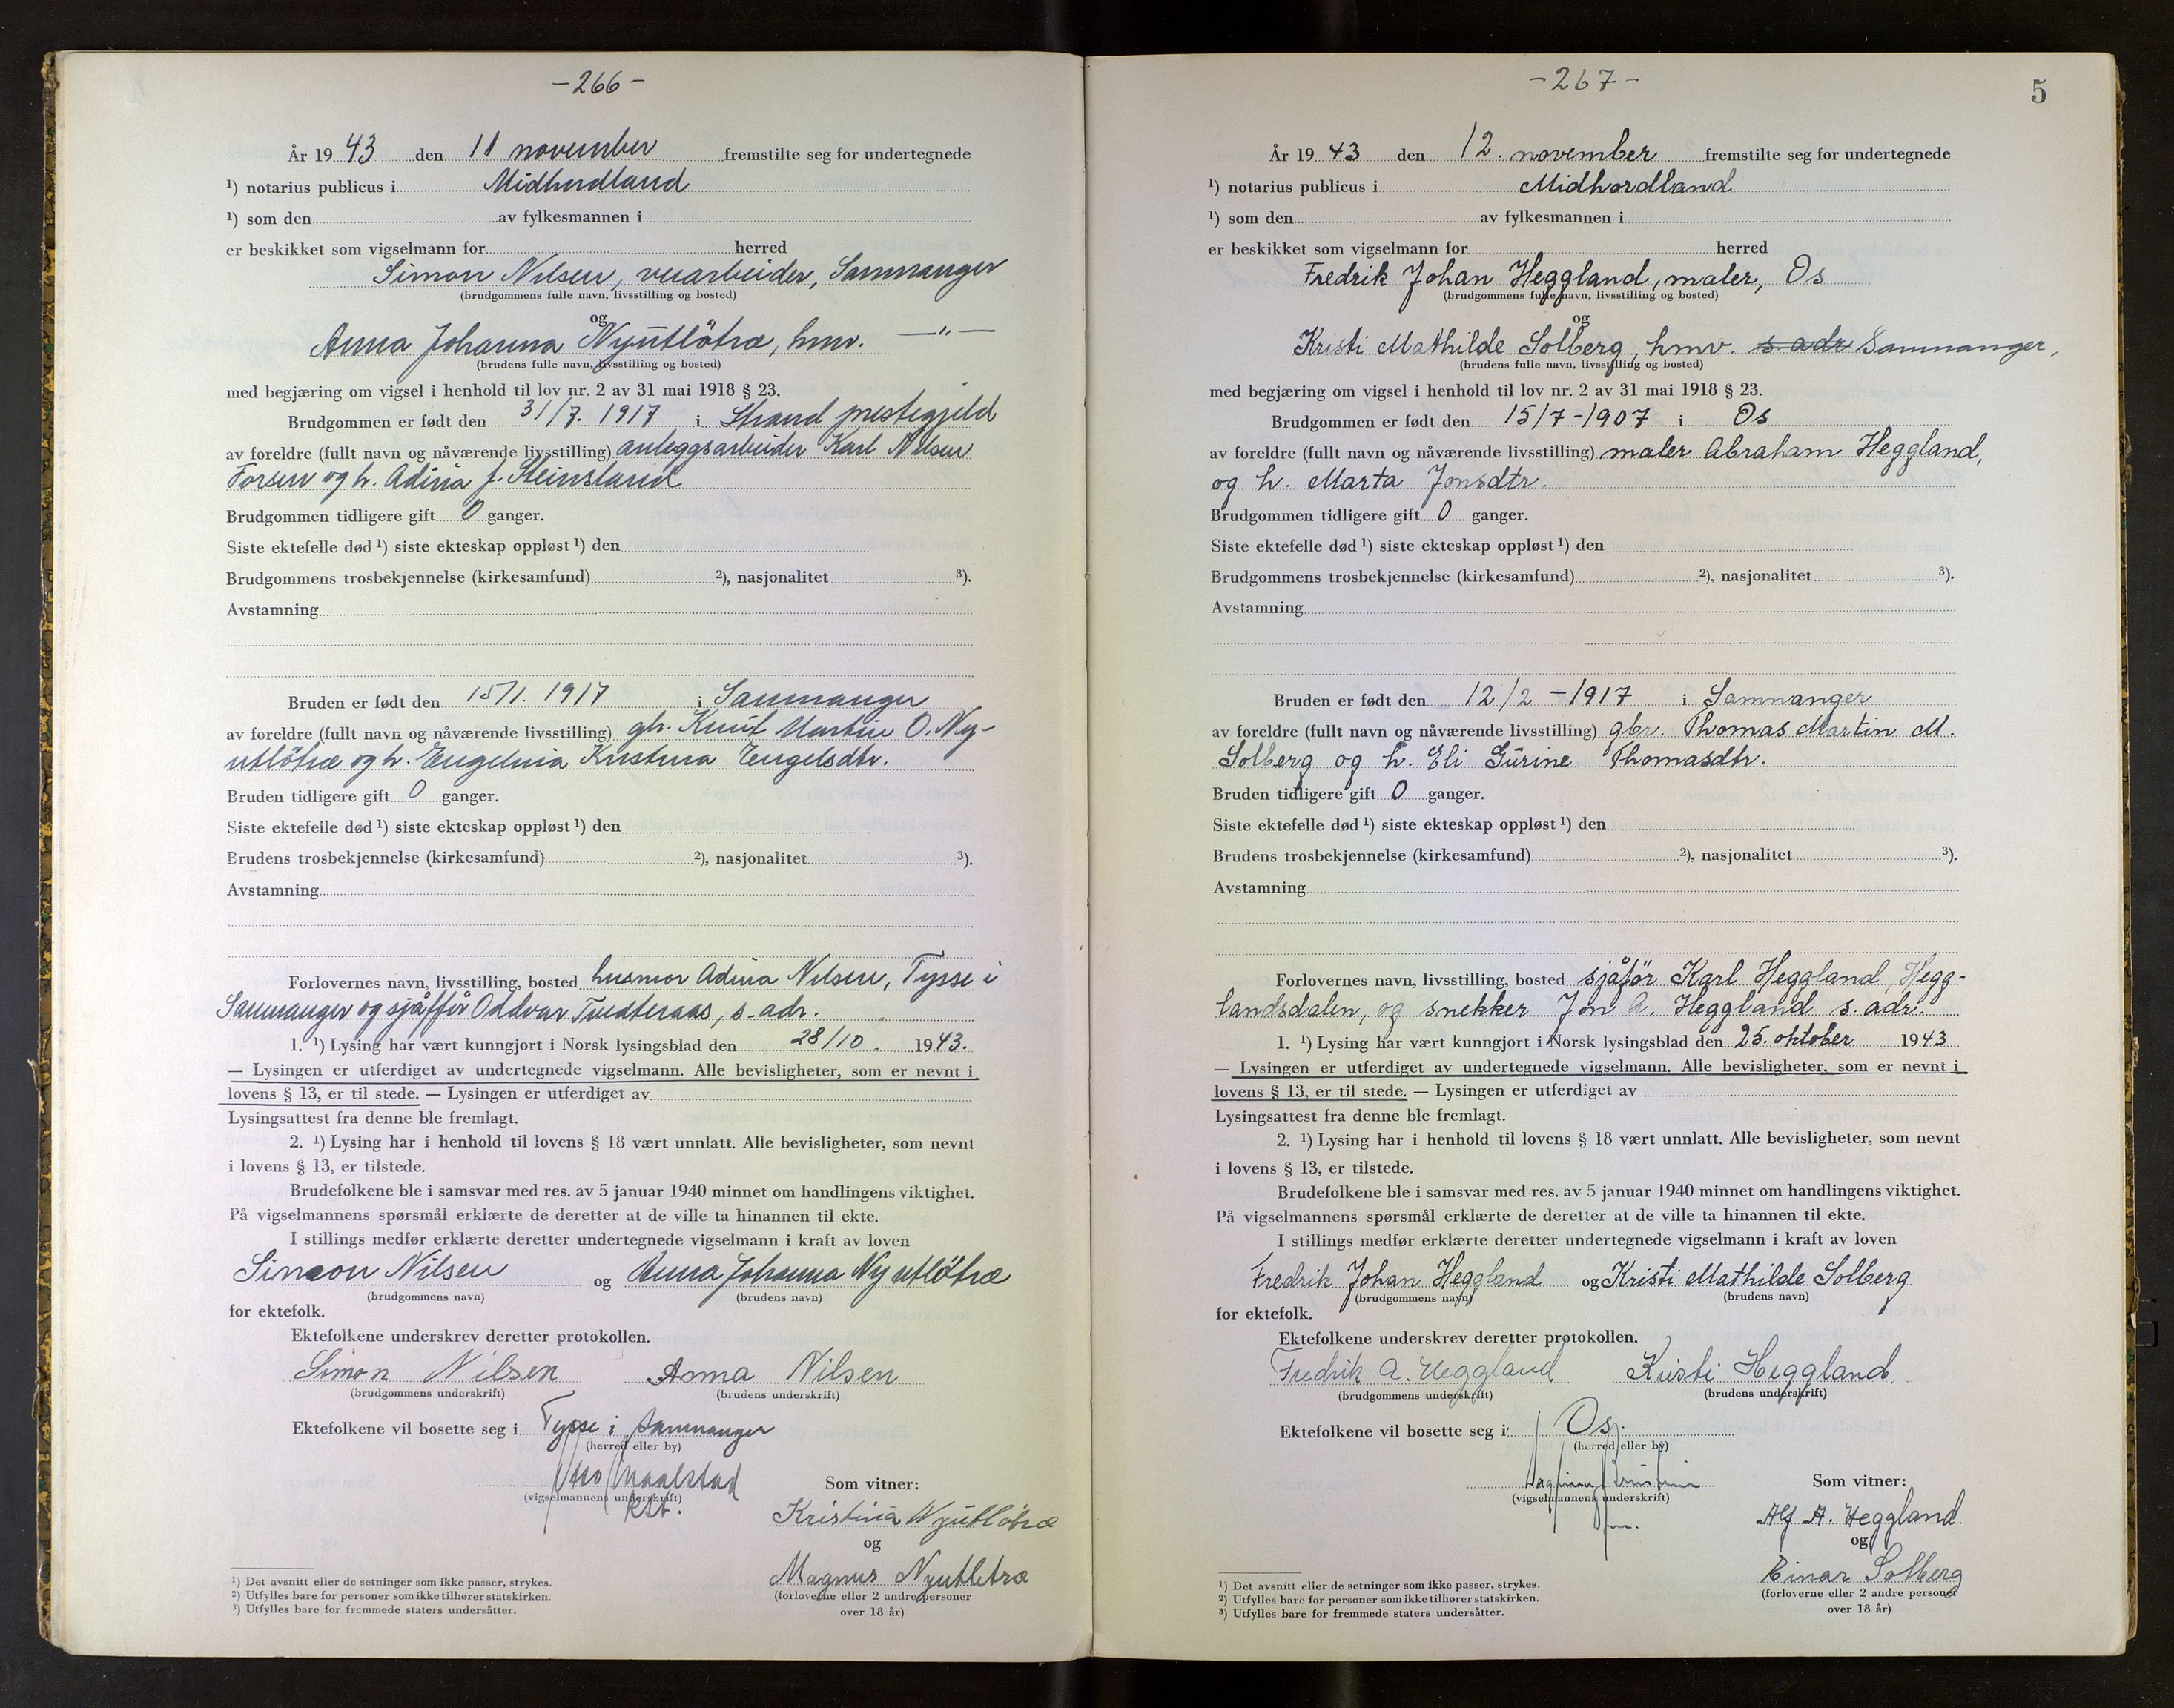 -266-
År 1943 den 11 november fremstilte seg for undertegnede
¹) notarius publicus i Midhordland
¹) som den av fylkesmannen i
er beskikket som vigselmann for herred
Simon Nilsen, veiarbeider, Samnanger
(brudgommens fulle navn, livsstilling og bosted)
og
Anna Johanna Nyutlötræ, hmv. —"—
(brudens fulle navn, livsstilling og bosted)
med begjæring om vigsel i henhold til lov nr. 2 av 31 mai 1918 § 23.
Brudgommen er født den 31/7. 1917 i Strand prestegjeld
av foreldre (fullt navn og nåværende livsstilling) anleggsarbeider Karl Nilsen
Forsen og h. Adina f. Steinsland
Brudgommen tidligere gift 0 ganger.
Siste ektefelle død ¹) siste ekteskap oppløst ¹) den
Brudgommens trosbekjennelse (kirkesamfund) ²), nasjonalitet ³).
Avstamning
Bruden er født den 15/1. 1917 i Samnanger
av foreldre (fullt navn og nåværende livsstilling) gbr. Knut Martin O. Ny-
utlötræ og h. Engelina Kristina Engelsdtr.
Bruden tidligere gift 0 ganger.
Siste ektefelle død ¹) siste ekteskap oppløst ¹) den
Brudens trosbekjennelse (kirkesamfund) ²), nasjonalitet ³).
Avstamning
Forlovernes navn, livsstilling, bosted husmor Adina Nilsen, Tysse i
Samnanger og sjåffør Oddvar Tvedteraas, s. adr.
1. ¹) Lysing har vært kunngjort i Norsk lysingsblad den 28/10. 1943.
— Lysingen er utferdiget av undertegnede vigselmann. Alle bevisligheter, som er nevnt i
lovens § 13, er til stede. — Lysingen er utferdiget av
Lysingsattest fra denne ble fremlagt.
2. ¹) Lysing har i henhold til lovens § 18 vært unnlatt. Alle bevisligheter, som nevnt
i lovens § 13, er tilstede.
Brudefolkene ble i samsvar med res. av 5 januar 1940 minnet om handlingens viktighet.
På vigselmannens spørsmål erklærte de deretter at de ville ta hinannen til ekte.
I stillings medfør erklærte deretter undertegnede vigselmann i kraft av loven
Simon Nilsen og Anna Johanna Nyutlötræ
(brudgommens navn) (brudens navn)
for ektefolk.
Ektefolkene underskrev deretter protokollen.
Simon Nilsen Anna Nilsen
(brudgommens underskrift) (brudens underskrift)
Ektefolkene vil bosette seg i Tysse i Samnanger
(herred eller by)
(vigselmannens underskrift)
Som vitner:
Kristina Nyutlötræ
og
Magnus Nyutletræ
(forloverne eller 2 andre personer
over 18 år)
¹) Det avsnitt eller de setninger som ikke passer, strykes.
²) Utfylles bare for personer som ikke tilhører statskirken.
³) Utfylles bare for fremmede staters undersåtter.
-267-
5
År 1943 den 12. november fremstilte seg for undertegnede
¹) notarius publicus i Midhordland
¹) som den av fylkesmannen i
er beskikket som vigselmann for herred
Fredrik Johan Heggland, maler, Os
(brudgommens fulle navn, livsstilling og bosted)
og
Kristi Mathilde Solberg, hmv. s. adr Samnanger,
(brudens fulle navn, livsstilling og bosted)
med begjæring om vigsel i henhold til lov nr. 2 av 31 mai 1918 § 23.
Brudgommen er født den 15/7-1907 i Os
av foreldre (fullt navn og nåværende livsstilling) maler Abraham Heggland,
og h. Marta Jonsdtr.
Brudgommen tidligere gift 0 ganger.
Siste ektefelle død ¹) siste ekteskap oppløst ¹) den
Brudgommens trosbekjennelse (kirkesamfund) ²), nasjonalitet ³).
Avstamning
Bruden er født den 12/2-1917 i Samnanger
av foreldre (fullt navn og nåværende livsstilling) gbr. Thomas Martin M.
Solberg og h. Eli Gurine Thomasdtr.
Bruden tidligere gift 0 ganger.
Siste ektefelle død ¹) siste ekteskap oppløst ¹) den
Brudens trosbekjennelse (kirkesamfund) ²), nasjonalitet ³).
Avstamning
Forlovernes navn, livsstilling, bosted sjåför Karl Heggland, Hegg-
landsdalen, og snekker Jon A. Heggland s. adr.
1. ¹) Lysing har vært kunngjort i Norsk lysingsblad den 25. oktober 1943
— Lysingen er utferdiget av undertegnede vigselmann. Alle bevisligheter, som er nevnt i
lovens § 13, er til stede. — Lysingen er utferdiget av
Lysingsattest fra denne ble fremlagt.
2. ¹) Lysing har i henhold til lovens § 18 vært unnlatt. Alle bevisligheter, som nevnt
i lovens § 13, er tilstede.
Brudefolkene ble i samsvar med res. av 5 januar 1940 minnet om handlingens viktighet.
På vigselmannens spørsmål erklærte de deretter at de ville ta hinannen til ekte.
I stillings medfør erklærte deretter undertegnede vigselmann i kraft av loven
Fredrik Johan Heggland og Kristi Mathilde Solberg
(brudgommens navn) (brudens navn)
for ektefolk.
Ektefolkene underskrev deretter protokollen.
Fredrik A. Heggland Kristi Heggland
(brudgommens underskrift) (brudens underskrift)
Ektefolkene vil bosette seg i Os.
(herred eller by)
(vigselmannens underskrift)
Som vitner:
Alf A. Heggland
og
Einar Solberg
(forloverne eller 2 andre personer
over 18 år)
¹) Det avsnitt eller de setninger som ikke passer, strykes.
²) Utfylles bare for personer som ikke tilhører statskirken.
³) Utfylles bare for fremmede staters undersåtter.